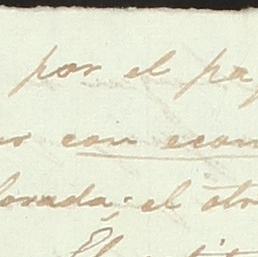 por el pa
con econ
lorada; el otr
El